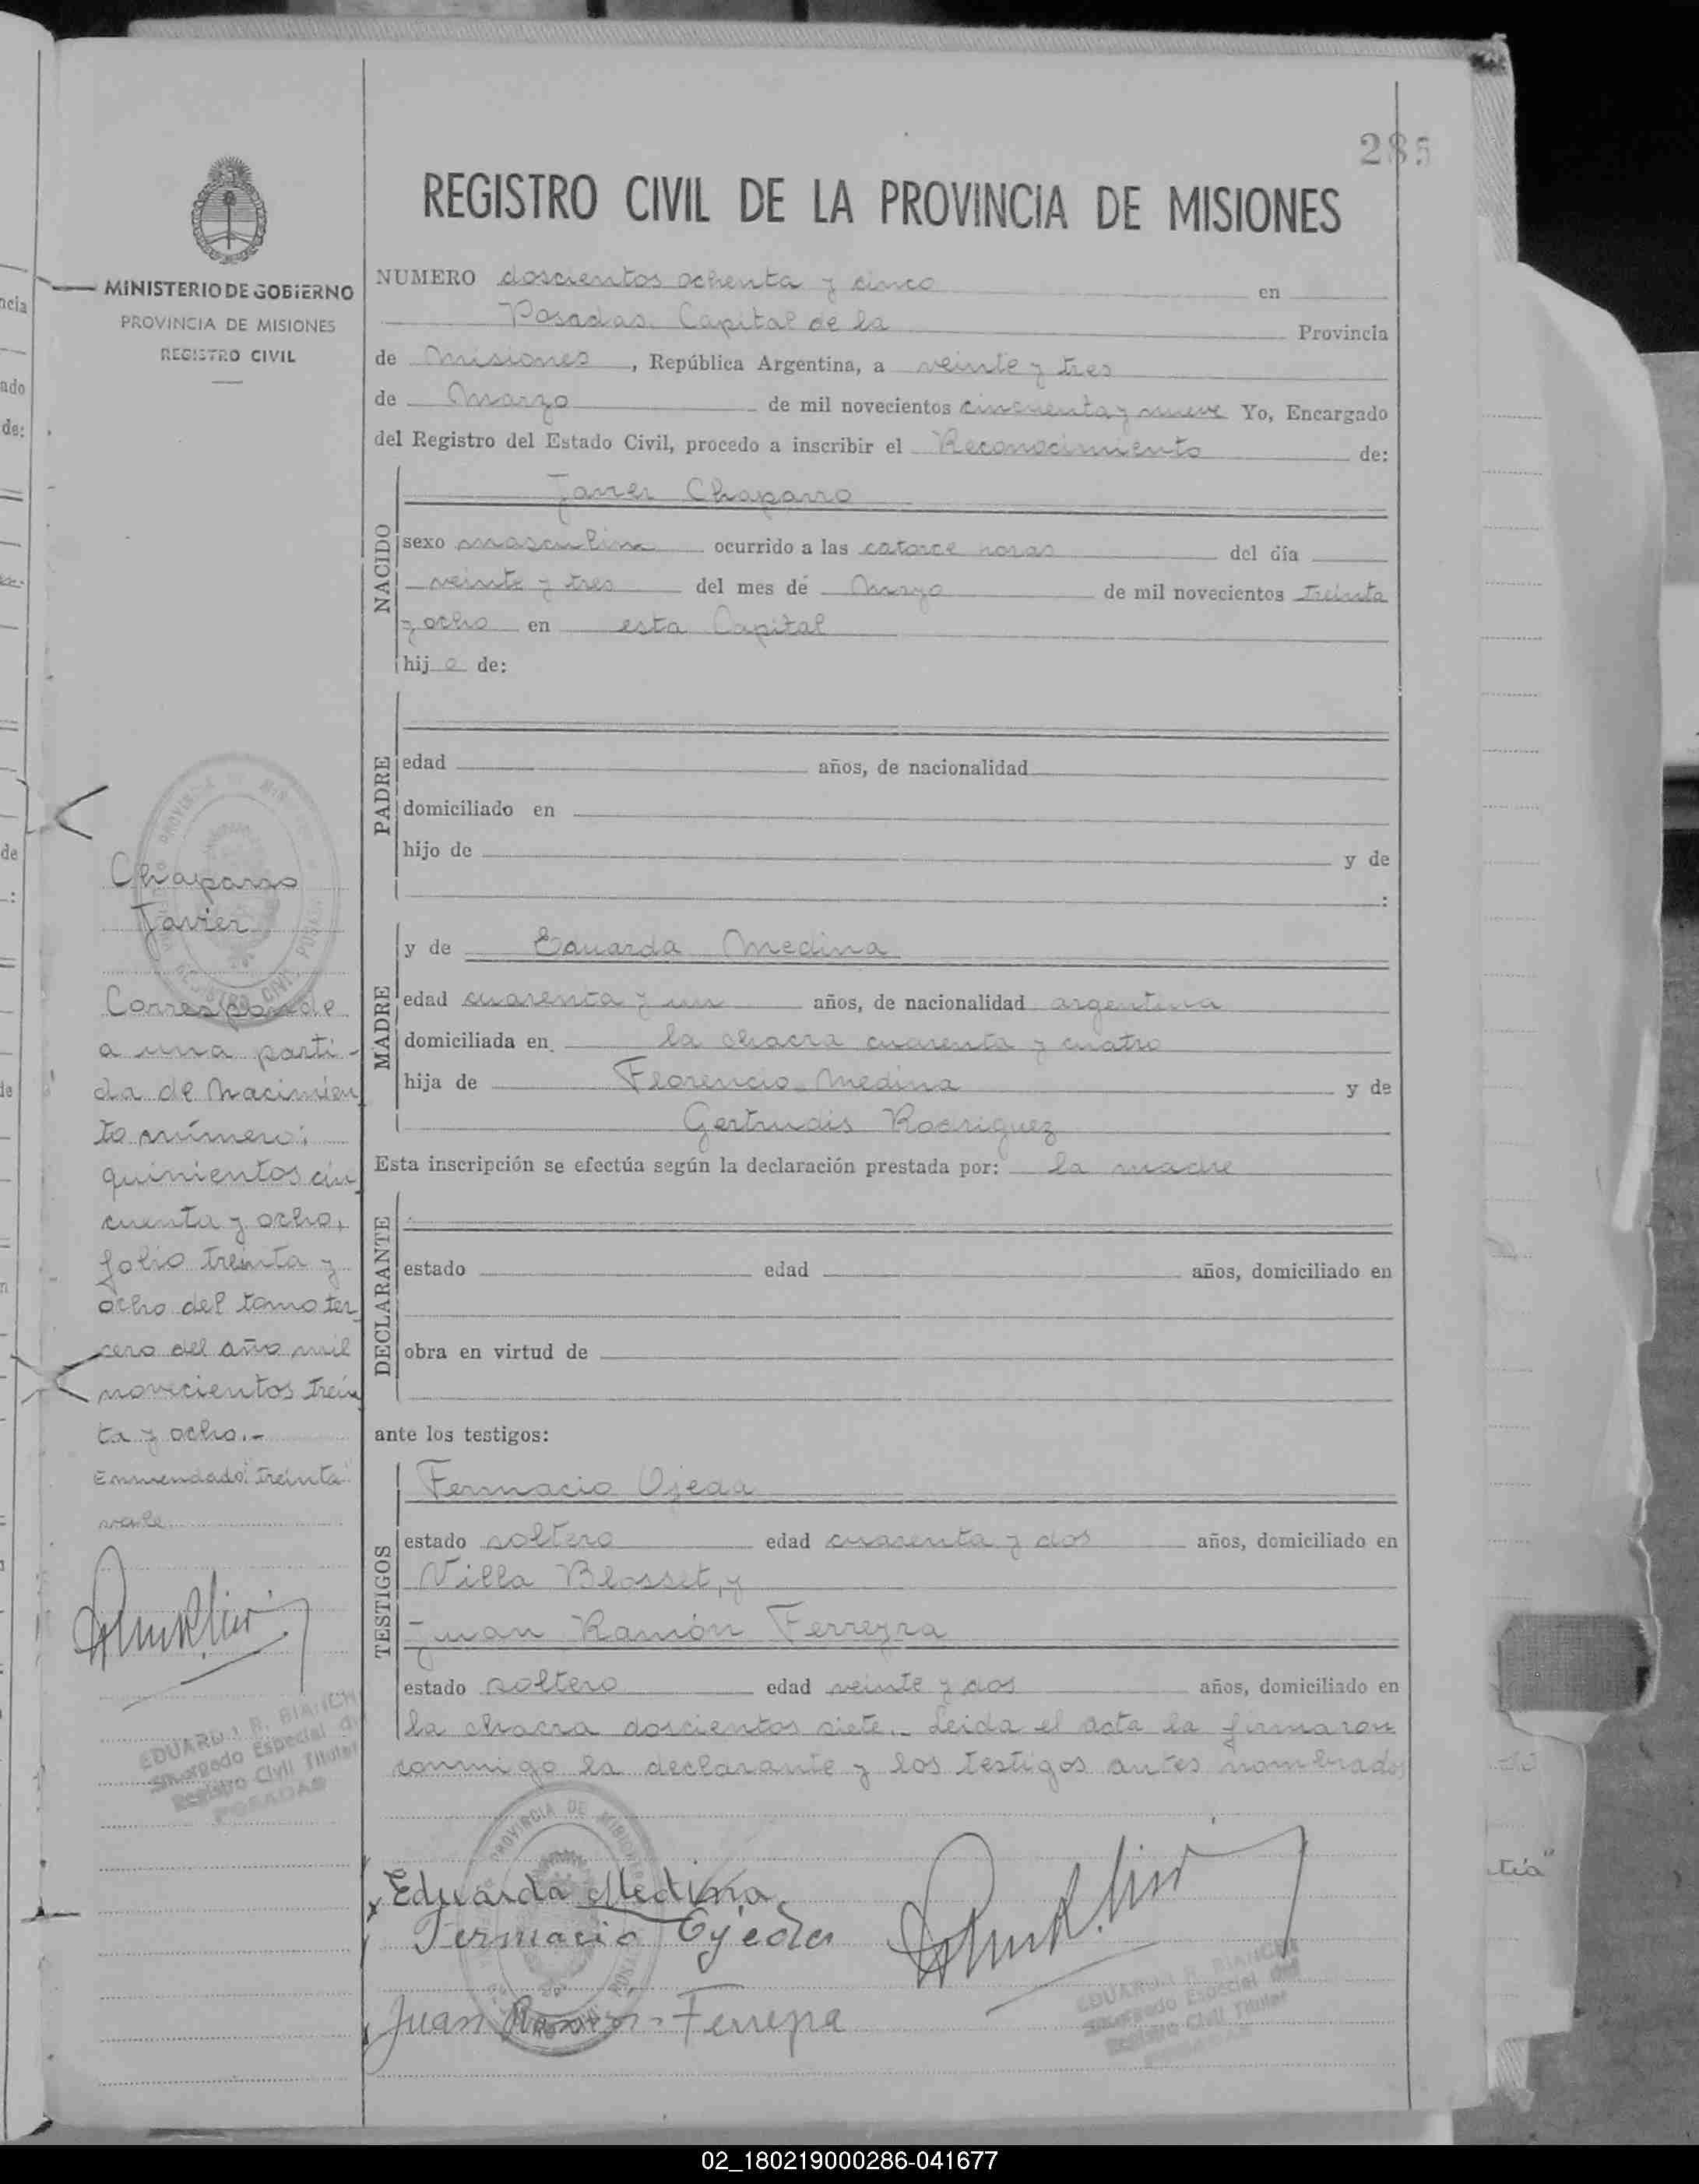 285
REGISTRO CIVIL DE LA PROVINCIA DE MISIONES
MINISTERIO DE GOBIERNO
PROVINCIA DE MISIONES
REGISTRO CIVIL
NUMERO doscientos ochenta y cinco en
Posadas. Capital de la Provincia
de Misiones, República Argentina, a veinte y tres
de Marzo de mil novecientos cincuenta y nueve Yo, Encargado
del Registro del Estado Civil, procedo a inscribir el Reconocimiento de:
NACIDO
Javier Chaparro
sexo masculino ocurrido a las catorce horas del día
veinte y tres del mes de Marzo de mil novecientos treinta
y ocho en esta Capital
hijo de:
PADRE
edad años, de nacionalidad
domiciliado en
hijo de y de
:
MADRE
y de Eduarda Medina
edad cuarenta y un años, de nacionalidad argentina
domiciliada en la chacra cuarenta y cuatro
hija de Florencio Medina y de
Gertrudis Rodriguez
Esta inscripción se efectúa según la declaración prestada por: la madre
DECLARANTE
estado edad años, domiciliado en
obra en virtud de
ante los testigos:
TESTIGOS
Fermacio Ojeda
estado soltero edad cuarenta y dos años, domiciliado en
Villa Blosset, y
Juan Ramón Ferreyra
estado soltero edad veinte y dos años, domiciliado en
la chacra doscientos siete.- Leida el acta la firmaron
conmigo la declarante y los testigos antes nombrados
Eduarda Medina
Fermacio Ojeda
Juan Ramon Ferreyra
EDUARDO R. BIANCHI
Encargado Especial del
Registro Civil Titular
POSADAS
Chaparro
Javier
Corresponde
a una parti-
da de Nacimien
to número:
quinientos cin
cuenta y ocho,
folio treinta y
ocho del tomo ter
cero del año mil
novecientos trein
ta y ocho.-
Enmendado: "treinta"
vale
EDUARDO R. BIANCHI
Encargado Especial del
Registro Civil Titular
POSADAS
ncia
ado
de:
de
tía"
02_180219000286-041677